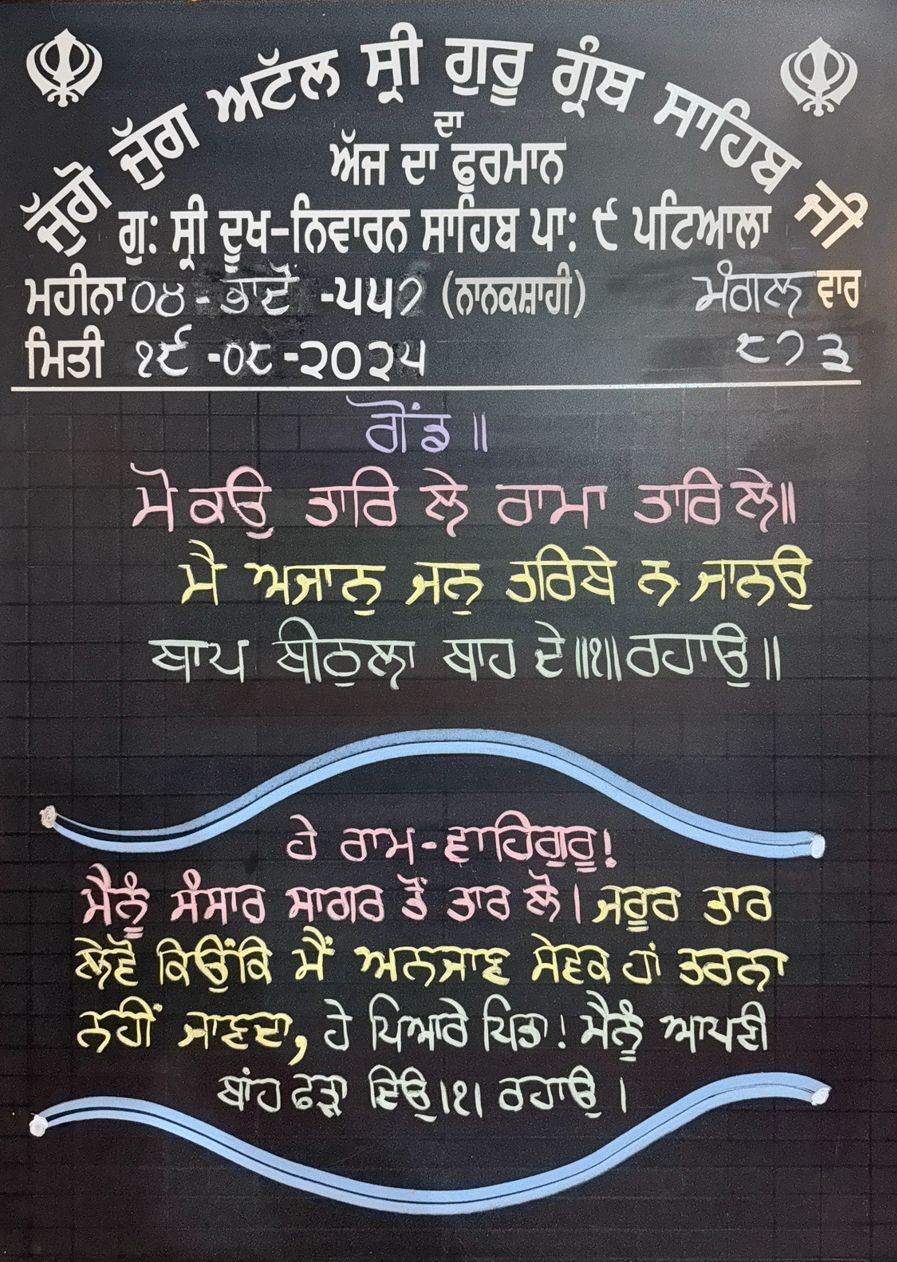 ਜੁੱਗੋ ਜੁੱਗ ਅਟੱਲ ਸ੍ਰੀ ਗੁਰੂ ਗ੍ਰੰਥ ਸਾਹਿਬ ਜੀ
ਦਾ
ਅੱਜ ਦਾ ਫੁਰਮਾਨ
ਗੁ: ਸ੍ਰੀ ਦੂਖ-ਨਿਵਾਰਨ ਸਾਹਿਬ ਪਾ: ੯ ਪਟਿਆਲਾ
ਮਹੀਨਾ 0੪ - ਭਾਦੋਂ -੫੫੭ (ਨਾਨਕਸ਼ਾਹੀ) ਮੰਗਲ ਵਾਰ
ਮਿਤੀ ੧੯ -੦੮ -੨੦੨੫ ੮੭੩
ਗੋਂਡ ॥
ਮੋ ਕਉ ਤਾਰਿ ਲੇ ਰਾਮਾ ਤਾਰਿ ਲੇ॥
ਮੈ ਅਜਾਨੁ ਜਨੁ ਤਰਿਬੇ ਨ ਜਾਨਉ
ਬਾਪ ਬੀਠੁਲਾ ਬਾਹ ਦੇ॥੧॥ਰਹਾਉ॥
ਹੇ ਰਾਮ-ਵਾਹਿਗੁਰੂ!
ਮੈਨੂੰ ਸੰਸਾਰ ਸਾਗਰ ਤੋਂ ਤਾਰ ਲੋ। ਜਰੂਰ ਤਾਰ
ਲੇਵੋ ਕਿਉਂਕਿ ਮੈਂ ਅਨਜਾਣ ਸੇਵਕ ਹਾਂ ਤਰਨਾ
ਨਹੀਂ ਜਾਣਦਾ, ਹੇ ਪਿਆਰੇ ਪਿਤਾ! ਮੈਨੂੰ ਆਪਣੀ
ਬਾਂਹ ਫੜਾ ਦਿਓ।੧। ਰਹਾਉ।